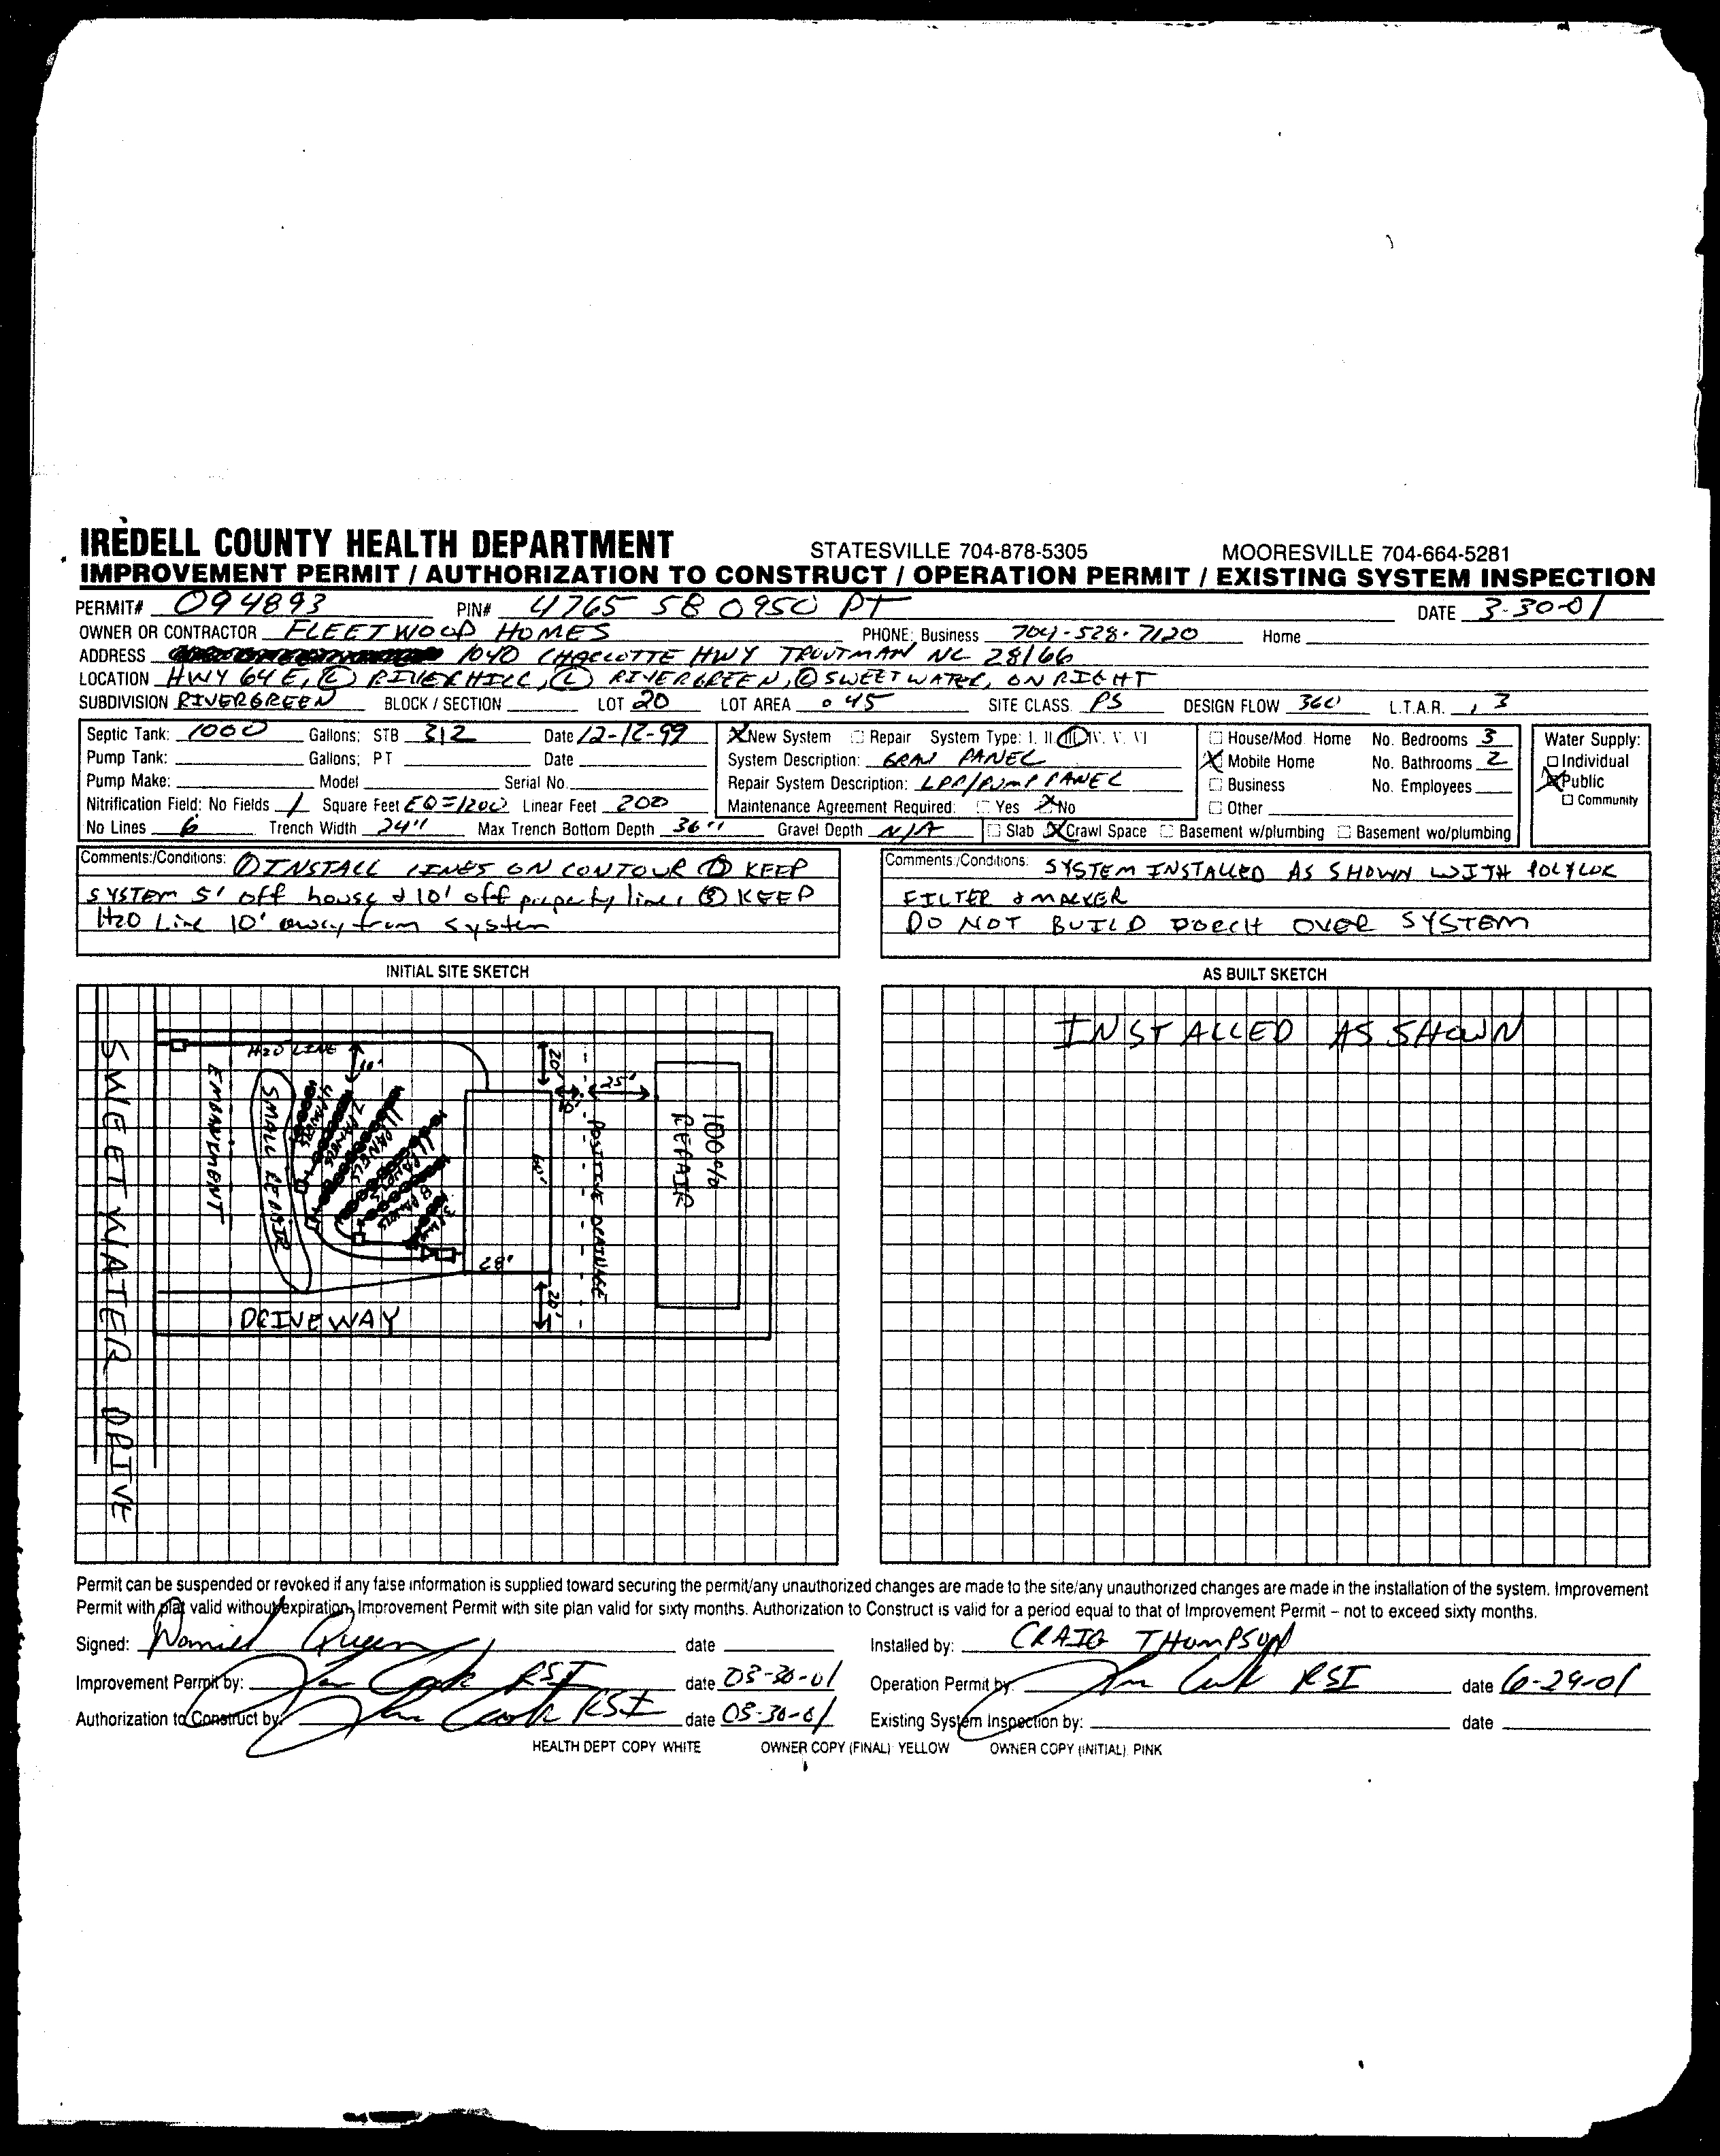 IREDELL COUNTY HEALTH DEPARTMENT STATESVILLE 704-878-5305 MOORESVILLE 704-664-5281
IMPROVEMENT PERMIT / AUTHORIZATION TO CONSTRUCT / OPERATION PERMIT / EXISTING SYSTEM INSPECTION
PERMIT# 094893 PIN# 4765 58 0950 PT DATE 3-30-01
OWNER OR CONTRACTOR FLEETWOOD HOMES PHONE: Business 704-528-7120 Home
ADDRESS 1040 CHARLOTTE HWY TROUTMAN NC 28166
LOCATION HWY 64 E, (L) RIVERHILL, (L) RIVERGREEN, SWEETWATER, ON RIGHT
SUBDIVISION RIVERGREEN BLOCK / SECTION LOT 20 LOT AREA .45 SITE CLASS. PS DESIGN FLOW 360 L.T.A.R. .3
Septic Tank: 1000 Gallons; STB 312 Date 12-12-99 X New System Repair System Type: I, II III IV, V, VI House/Mod. Home No. Bedrooms 3 Water Supply:
Pump Tank: Gallons; PT Date System Description: GRAV PANEL X Mobile Home No. Bathrooms 2 Individual
Pump Make: Model Serial No. Repair System Description: LPP/PUMP PANEL Business No. Employees X Public
Nitrification Field: No Fields 1 Square Feet EQ=1200 Linear Feet 200 Maintenance Agreement Required: Yes X No Other Community
No Lines 6 Trench Width 24" Max Trench Bottom Depth 36" Gravel Depth N/A Slab X Crawl Space Basement w/plumbing Basement wo/plumbing
Comments:/Conditions: ① INSTALL LINES ON CONTOUR ② KEEP
SYSTEM 5' off house & 10' off property lines ③ KEEP
H2O Line 10' away from system
Comments:/Conditions: SYSTEM INSTALLED AS SHOWN WITH POLYLOK
FILTER & MARKER
DO NOT BUILD PORCH OVER SYSTEM
INITIAL SITE SKETCH
AS BUILT SKETCH
INSTALLED AS SHOWN
SWEETWATER DRIVE
EMBANKMENT
H2O LINE
10'
SMALL REPAIR
4 PANELS
7 PANELS
11 PANELS
11 PANELS
8 PANELS
60'
28'
20'
20'
25'
POSITIVE DRAINAGE
100%
REPAIR
DRIVEWAY
Permit can be suspended or revoked if any false information is supplied toward securing the permit/any unauthorized changes are made to the site/any unauthorized changes are made in the installation of the system. Improvement
Permit with plat valid without expiration, Improvement Permit with site plan valid for sixty months. Authorization to Construct is valid for a period equal to that of Improvement Permit – not to exceed sixty months.
Signed: date Installed by: CRAIG THOMPSON
Improvement Permit by: RSI date 03-30-01 Operation Permit by: RSI date 6-29-01
Authorization to Construct by: RSI date 03-30-01 Existing System Inspection by: date
HEALTH DEPT COPY WHITE OWNER COPY (FINAL) YELLOW OWNER COPY (INITIAL) PINK